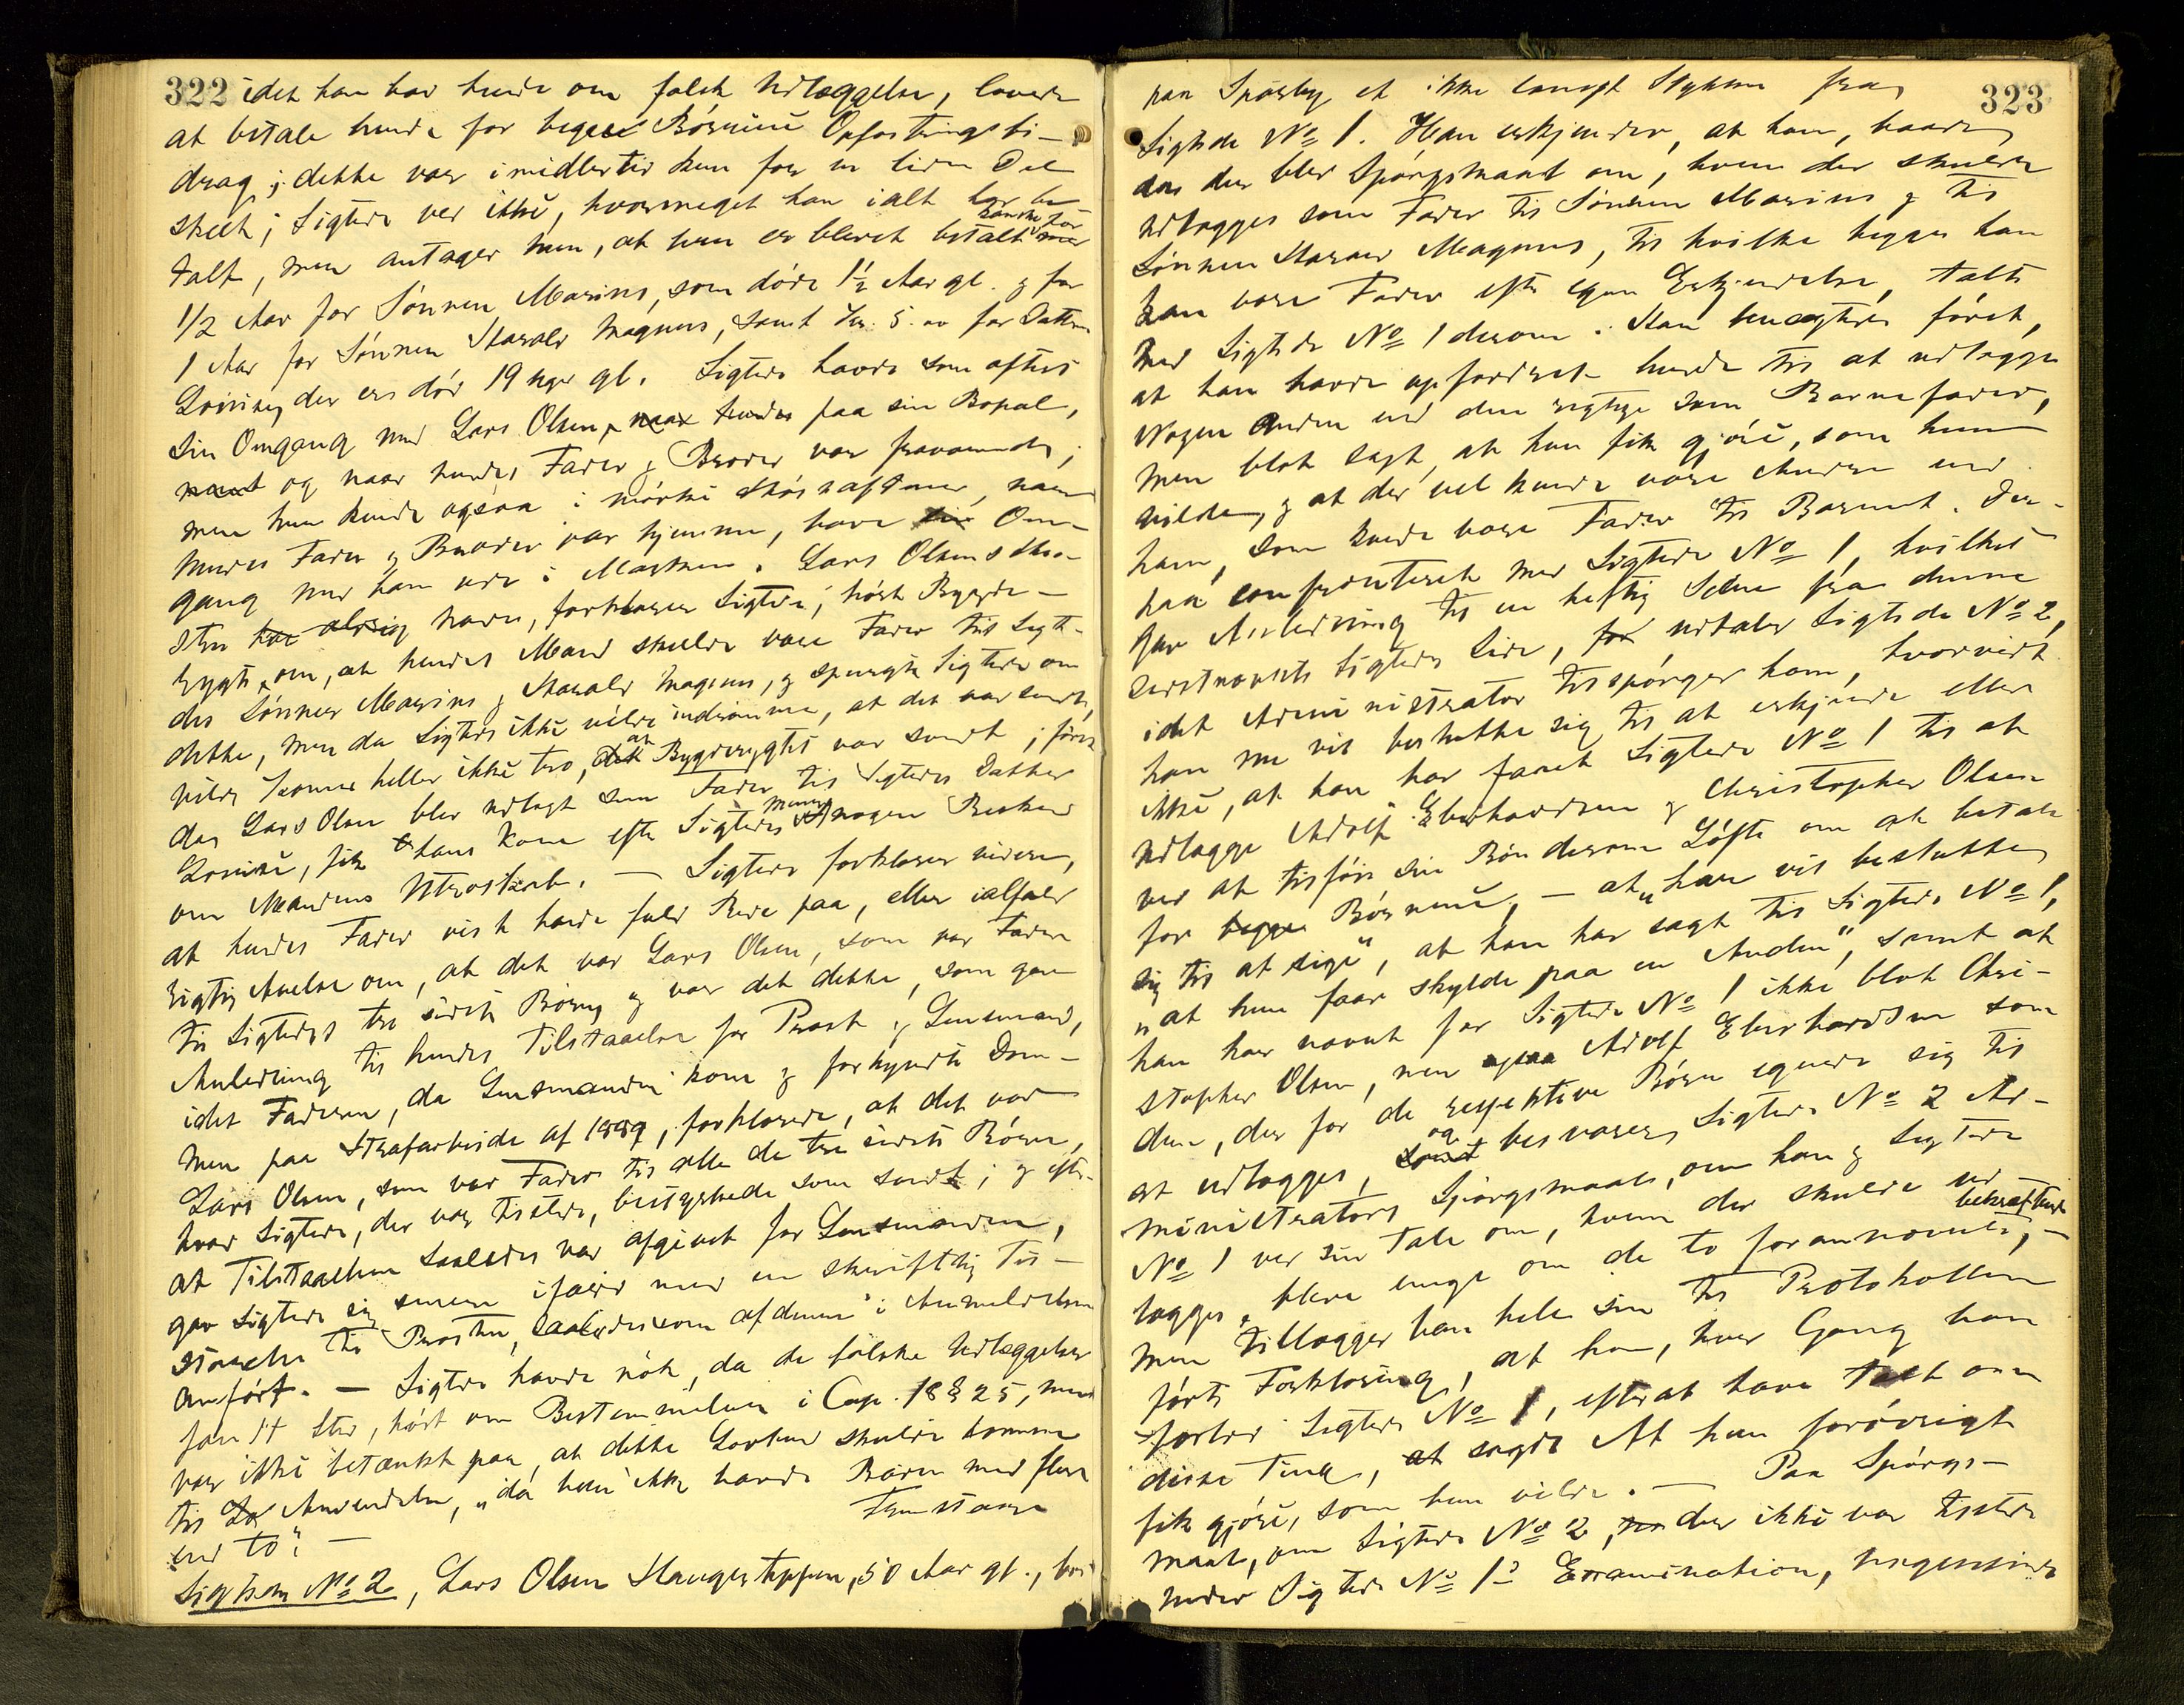 322 idet han bad hende om falsk Udlæggelse, lovede
at betale hende for begge Børnene Opfostringsbi-
drag; dette var imidlertid kun for en liden Del
skeet; Sigtede ved ikke, hvormeget han ialt har be
talt, men antager hun, at hun er blevet betalt kanske for
1/2 Aar for Sønnen Marius, som døde 1 1/2 Aar gl. & for
1 Aar for Sønnen Harald Magnus, samt Kr. 5.00 for Datteren
Lovise, der er død 19 Uger gl. Sigtede havde som oftest
sin Omgang med Lars Olsen, naar hendes paa sin Bopæl,
samt og naar hendes Fader & Broder var fraværende;
men hun kunde ogsaa i mørke Høstaftener, naar
hendes Fader & Broder var hjemme, have sin Om-
gang med ham ude i Marken. Lars Olsens Hu-
stru har aldrig havde, forklarer Sigtede, hørt Bygde-
rygte om, at hendes Mand skulde være Fader til Sigte-
des Sønner Marius & Harald Magnus, & spurgte Sigtede om
dette, men da Sigtede ikke vilde indrømme, at det var sandt,
vilde Konen heller ikke tro, at Bygderygtet var sandt; først
da Lars Olsen blev udlagt som Fader til Sigtedes Datter
Lovise, fik hans Kone efter Sigtedes Mening nogen Besked
om Mandens Utroskab. — Sigtede forklarer videre,
at hendes Fader vist havde fuld Rede paa, eller ialfald
rigtig Anelse om, at det var Lars Olsen, som var Fader
til Sigtedes tre sidste Børn, & var det dette, som gav
Anledning til hendes Tilstaaelse for Præst & Lensmand,
idet Faderen, da Lensmanden kom & forkyndte Dom-
men paa Strafarbeide af 1889, forklarede, at det var
Lars Olsen, som var Fader til alle de tre sidste Børn,
hvad Sigtede, der var tilstede, bestyrkede som sandt; & efter
at Tilstaaelsen saaledes var afgivet for Lensmanden,
gav Sigtede sig senere ifærd med en skriftlig Til-
staaelse til Præsten, saaledes som af denne i Anmeldelsen
anført. — Sigtede havde nok, da de falske Udlæggelser
fandt Sted, hørt om Bestemmelsen i Cap. 18 § 25, men
var ikke betænkt paa, at dette Lovbud skulde komme
til Anvendelse, "da hun ikke havde Børn med flere
end to". — Fremstaar
Sigtede No 2, Lars Olsen Haugerteppen, 50 Aar gl., bo-
323
paa Spørsby et ikke langt Stykke fra
Sigtede No 1. Han erkjender, at han, baade
da der blev Spørgsmaal om, hvem der skulde
udlægges som Fader til Sønnen Marius & til
Sønnen Harald Magnus, til hvilke begge han
kan være Fader efter egen Erkjendelse, talte
med Sigtede No 1 derom. Han benægtede først,
at han havde opfordret hende til at udlægge
Nogen Anden end den rigtige som Barnefader,
men blot sagt, at hun fik gjøre, som hun
vilde, & at der vel kunde være Andre end
ham, som kunde være Fader til Barnet. Der-
paa confronteret med Sigtede No 1, hvilket
gav Anledning til en heftig Scene fra denne
sidstnævnte Sigtedes Side, udtaler Sigtede No 2,
idet Administrator tilspørger ham, hvorvidt
han nu vil beslutte sig til at erkjende eller
ikke, at han har faaet Sigtede No 1 til at
udlægge Adolf Eberhardsen & Christopher Olsen
ved at tilføie sin Bøn derom Løfte om at betale
for begge Børnene, — at "han vil beslutte
sig til at sige", at han har sagt til Sigtede No 1,
"at hun faar skylde paa en Anden", samt at
han har nævnt for Sigtede No 1 ikke blot Chri-
stopher Olsen, men ogsaa Adolf Eberhardsen som
dem, der for de respektive Børn egnede sig til
at udlægges, og besvarer Sigtede No 2 Ad-
ministrators Spørgsmaal, om han & Sigtede
No 1 ved sin Tale om, hvem der skulde ud
lægges, bleve enige om de to forannævnte, bekræftende —
men tillægger han hele sin til Protokollen
førte Forklaring, at han, hver Gang han
forlod Sigtede No 1, efterat have talt om
disse Ting, sagde At hun forøvrigt
fik gjøre, som hun vilde. — Paa Spørgs-
maal, om Sigtede No 2, der ikke var tilstede
under Sigtede No 1s Examination,